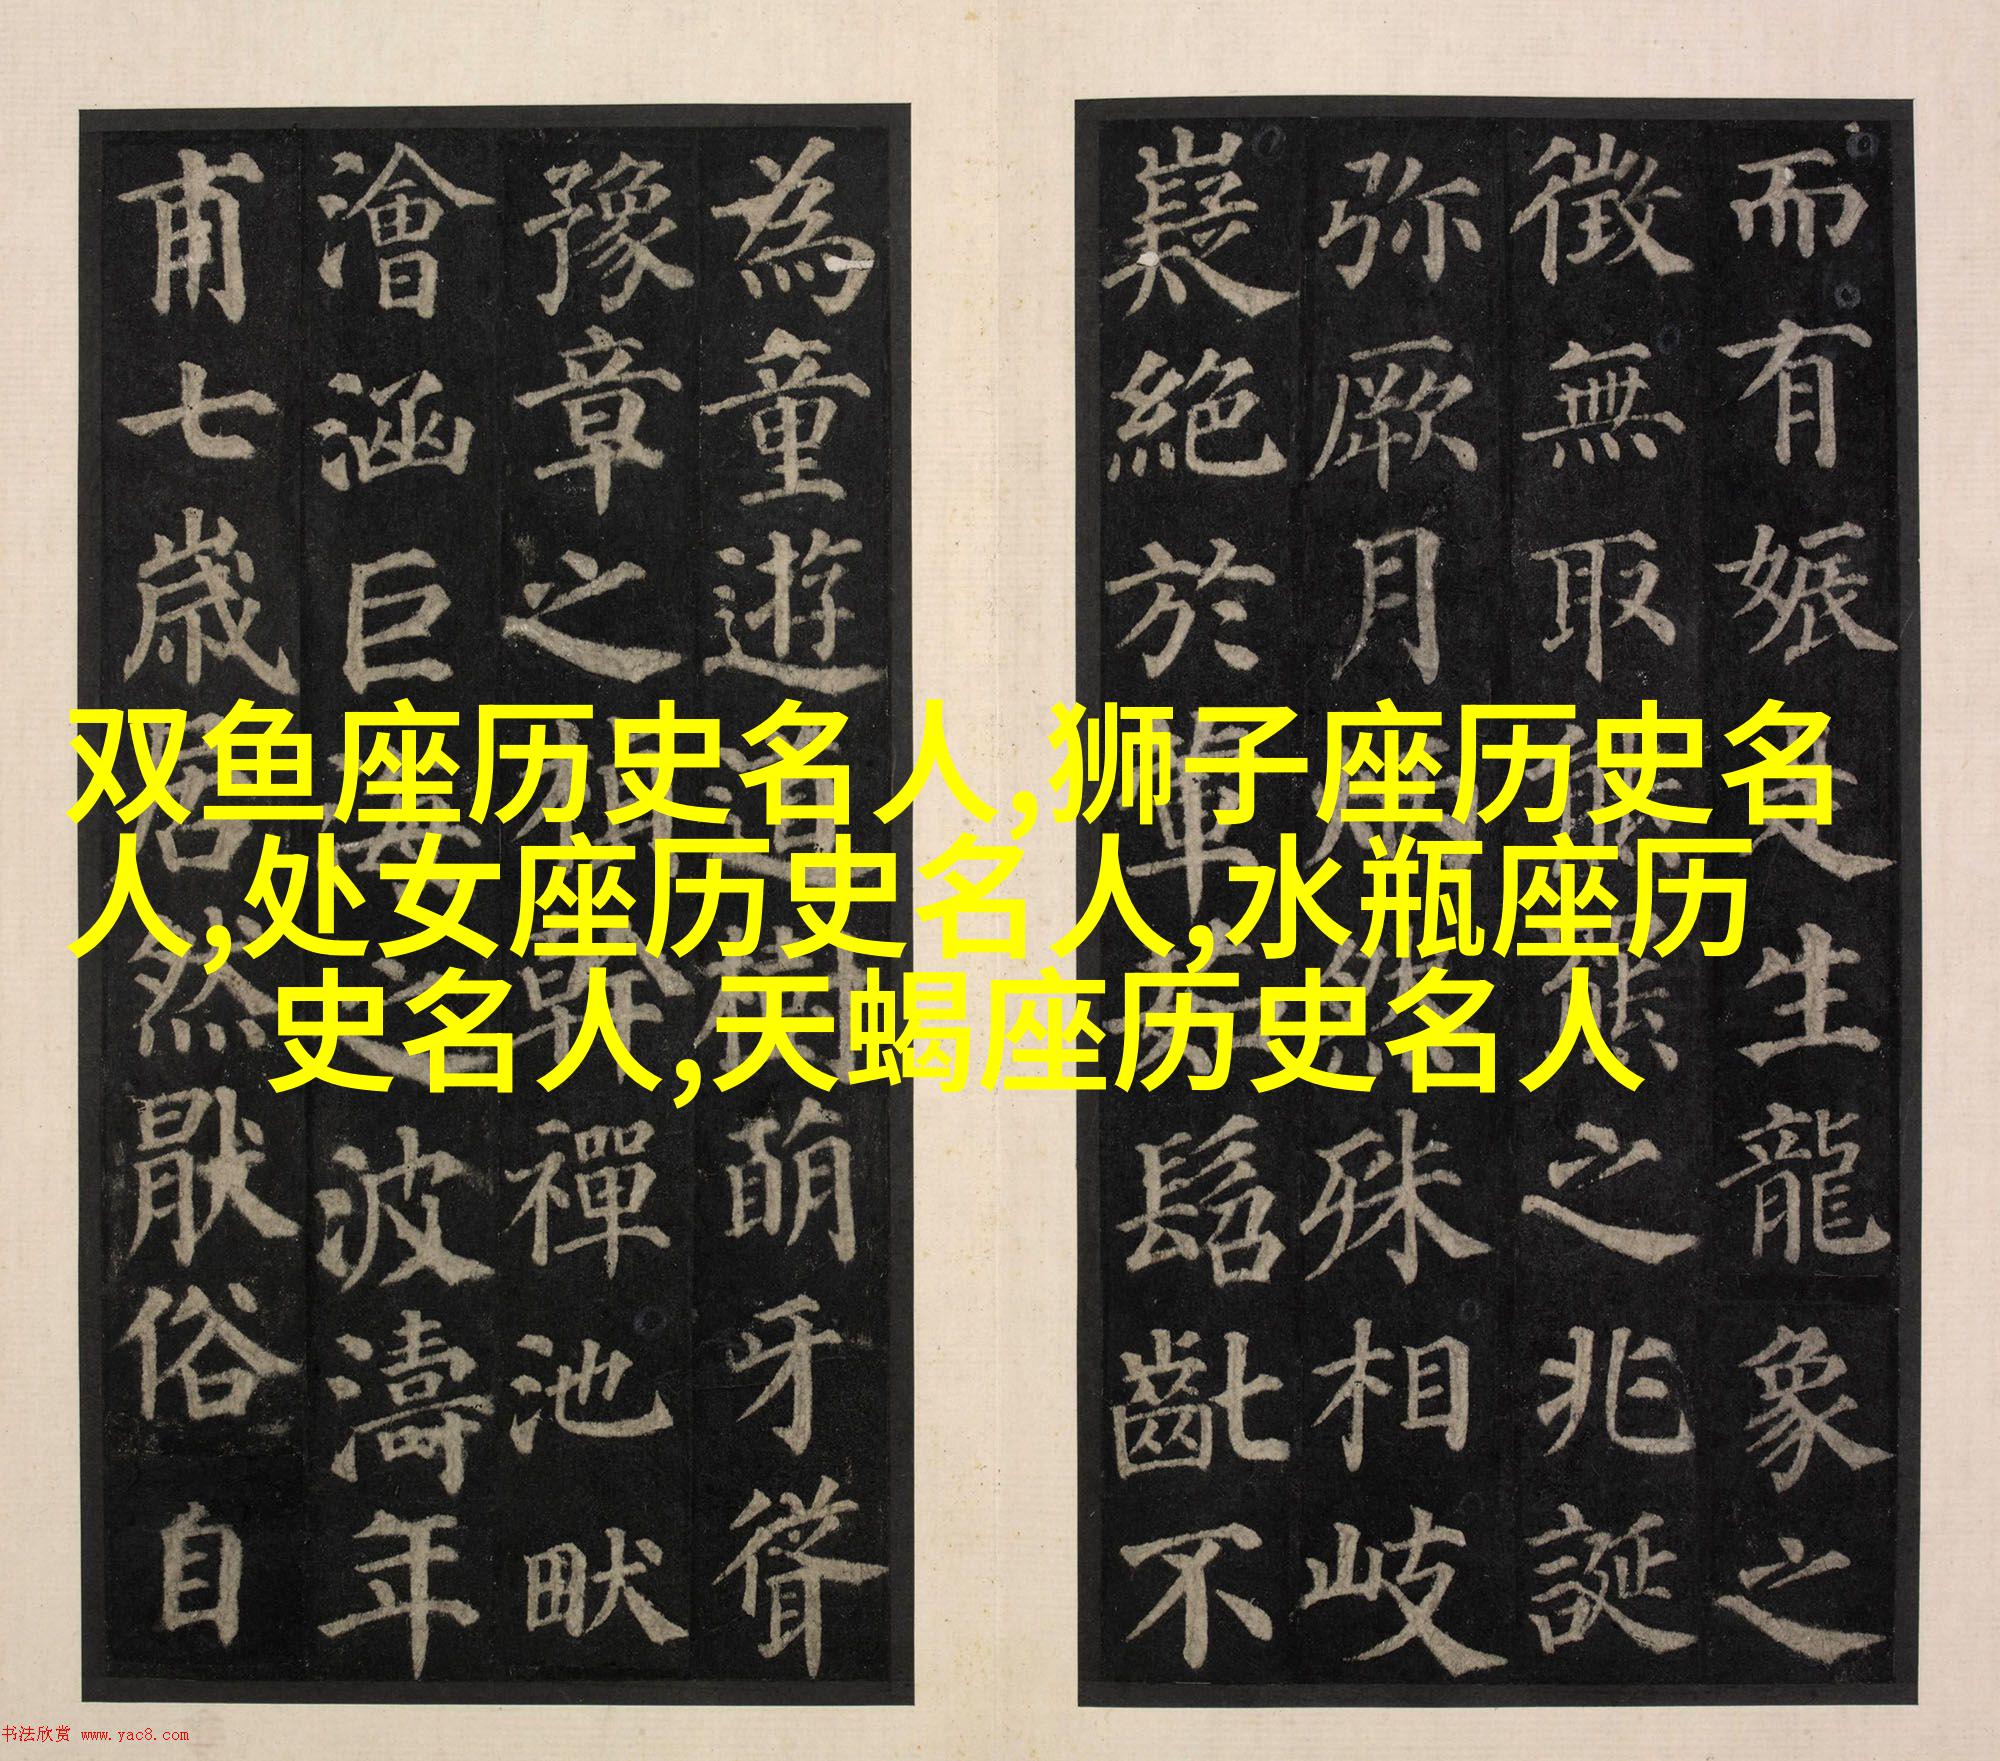 而有娠是生龍象之
徵無取之兆誕
弥厥月殊相岐
嶷絕於髫齔不
為童遊道樹萌牙聳
豫章之楨幹禪池畎
澮涵巨海之波濤年
甫七歲居然猒俗自
双鱼座历史名人,狮子座历史名
人,处女座历史名人,水瓶座历
史名人,天蝎座历史名人
书法欣赏 www.yac8.com